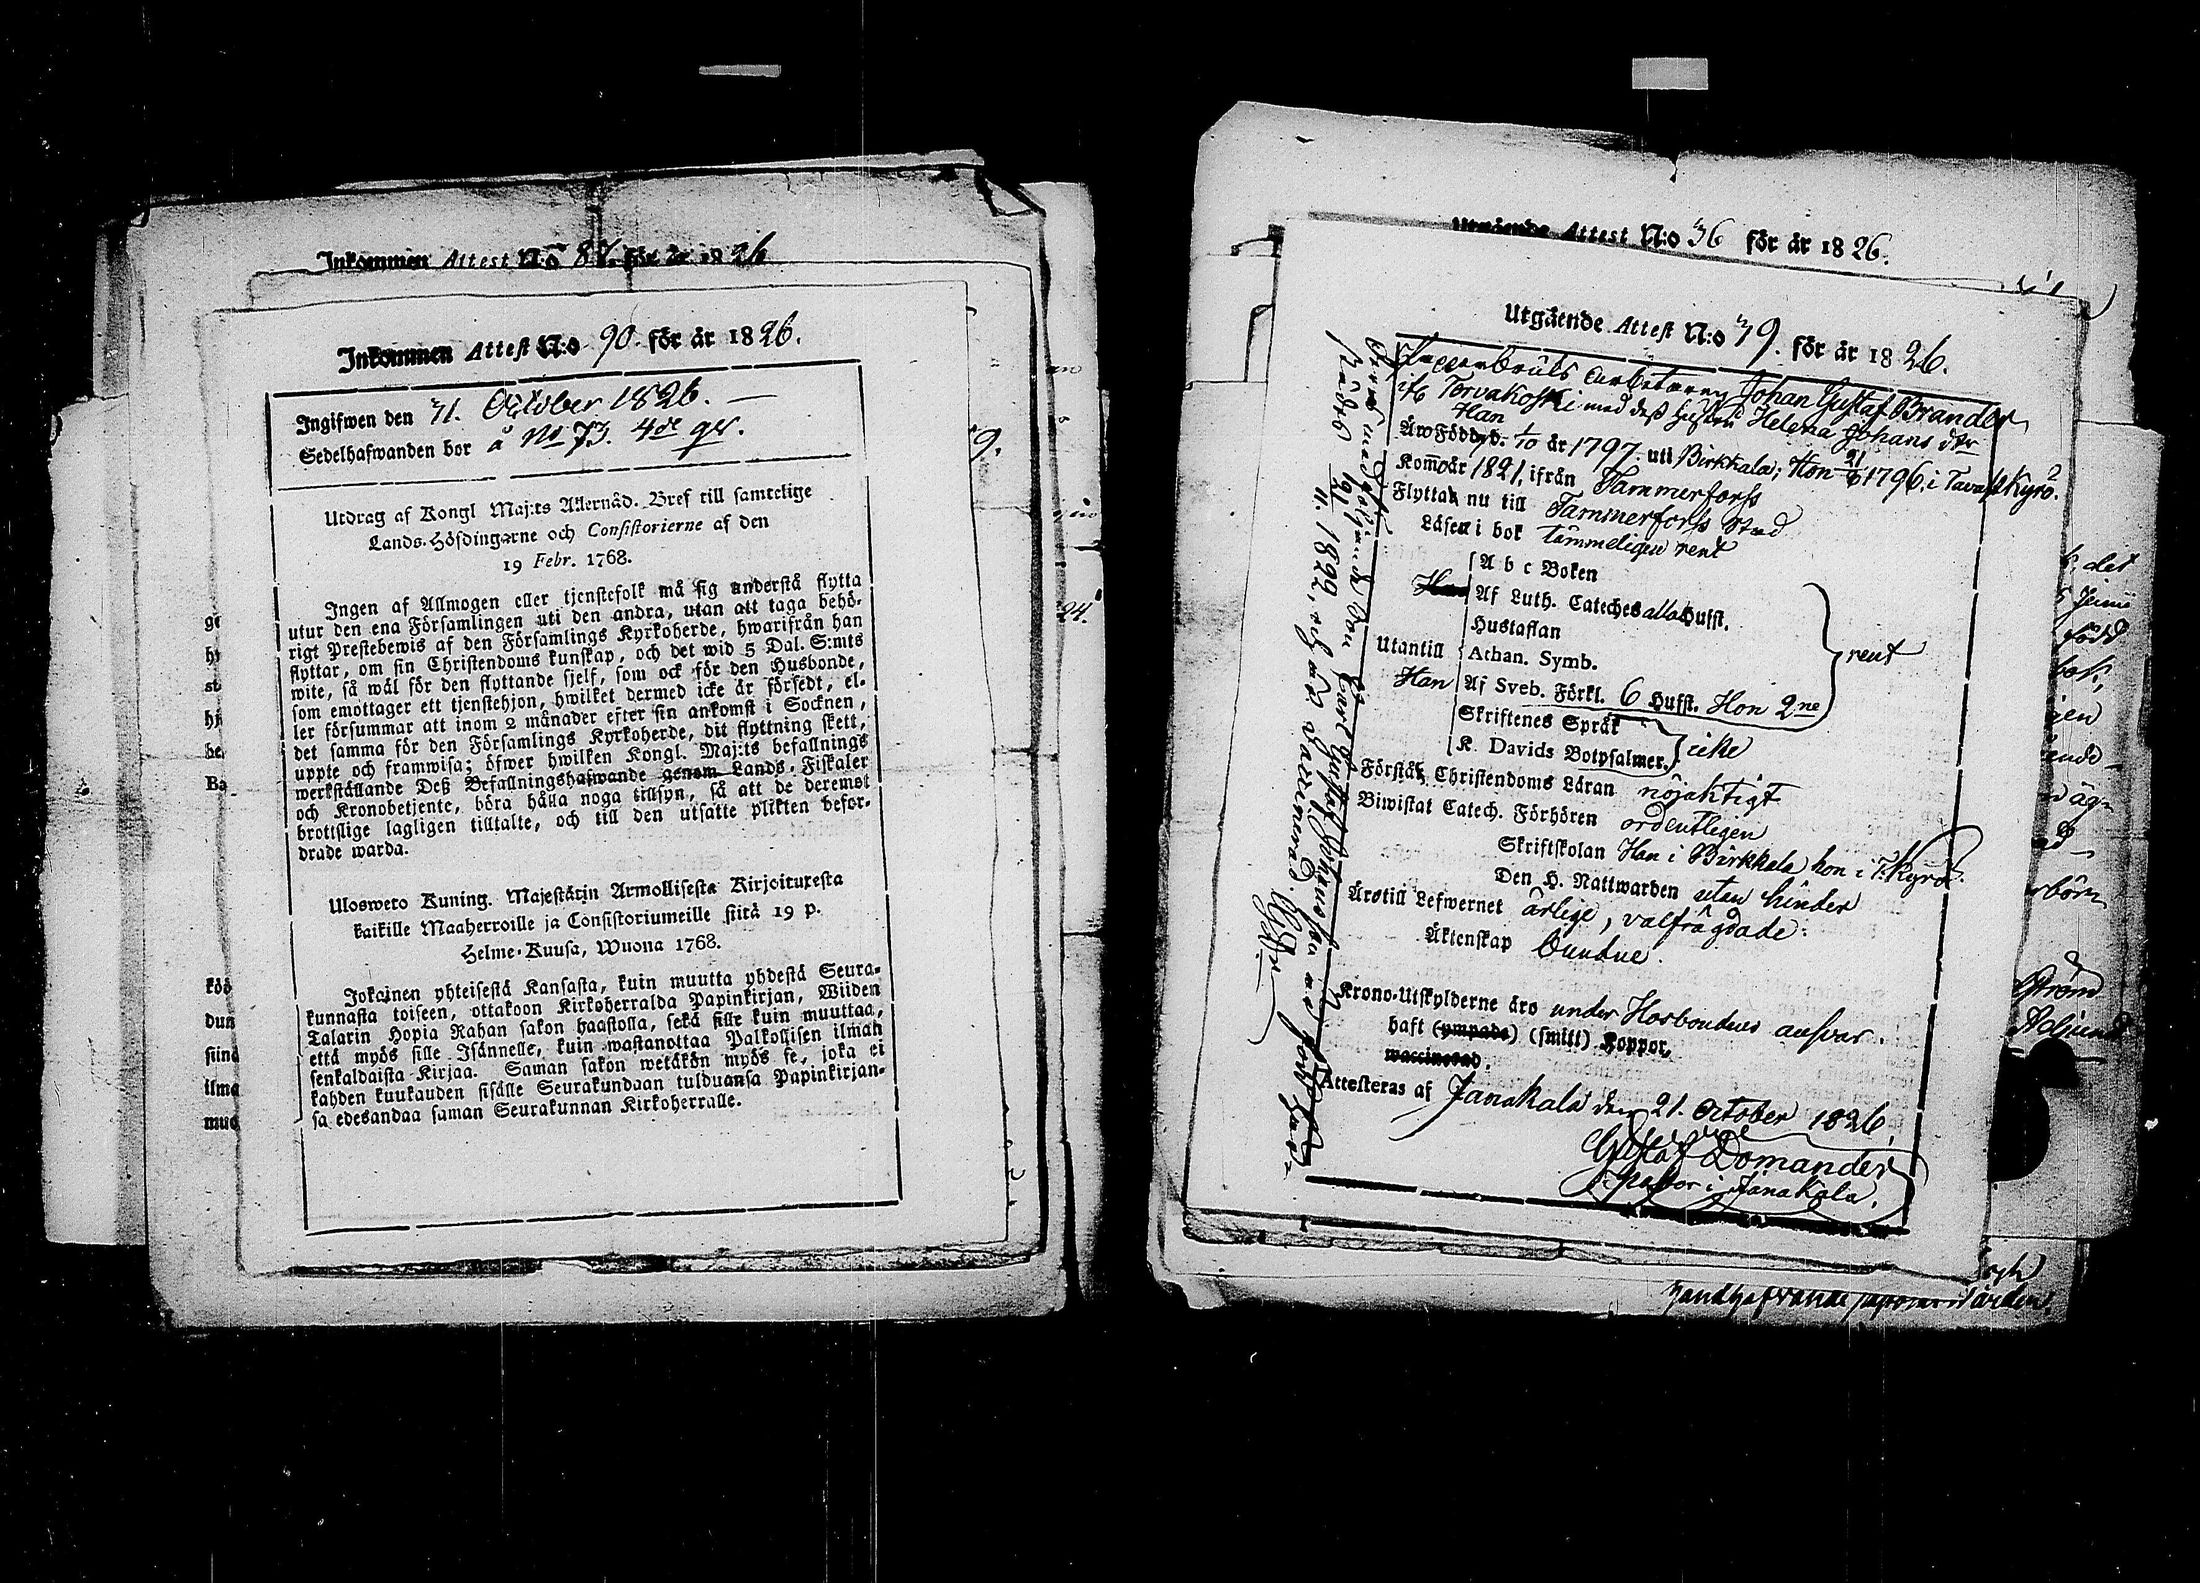 Inkommen Attest N:o 87. för år 1826
Inkommen Attest N:o 90. för år 1826.
Ingifwen den 31. October 1826. —
Sedelhafwanden bor å No 73. 4de qr.
Utdrag af Kongl Maj:ts Allernåd. Bref till samtelige
Lands-Höfdingarne och Consistorierne af den
19 Febr. 1768.
Ingen af Allmogen eller tjenstefolk må sig understå flytta
utur den ena Församlingen uti den andra, utan att taga behö-
rigt Prestebewis af den Församlings Kyrkoherde, hwarifrån han
flyttar, om sin Christendoms kunskap, och det wid 5 Dal. S:mts
wite, så wäl för den flyttande sjelf, som ock för den Husbonde,
som emottager ett tjenstehjon, hwilket dermed icke är försedt, el-
ler försummar att inom 2 månader efter sin ankomst i Socknen,
det samma för den Församlings Kyrkoherde, dit flyttning skett,
uppte och framwisa; öfwer hwilken Kongl. Maj:ts befallnings
werkställande Deß Befallningshafwande genom Lands-Fiskaler
och Kronobetjente, böra hålla noga tillsyn, så att de deremot
brottslige lagligen tilltalte, och till den utsatte plikten befor-
drade warda.
Ulosweto Kuning. Majestätin Armollisesta Kirjoituresta
kaikille Maaherroille ja Consistoriumeille siitä 19 p.
Helme-Kuusa, Wuona 1768.
Jokainen yhteisestä Kansasta, kuin muutta yhdestä Seura-
kunnasta toiseen, ottakoon Kirkoherralda Papinkirjan, Wiiden
Talarin Hopia Rahan sakon haastolla, sekä sille kuin muuttaa,
että myös sille Isännelle, kuin wastanottaa Palkollisen ilman
senkaldaista Kirjaa. Saman sakon wetäkön myös se, joka ei
kahden kuukauden sisälle Seurakundaan tulduansa Papinkirjan-
sa edesandaa saman Seurakunnan Kirkoherralle.
Utgående Attest N:o 36 för år 1826.
Utgående Attest N:o 39. för år 1826.
Johan Gustaf Brander
med deß hustru Helena Johans dtr
Han
Äro Född 1/10 år 1797 uti Birkkala; Hon 1796, i Tavast Kyrö.
Kom år 1821, ifrån Tammerforss
Flytta nu till Tammerforss stad
Läsa i bok tämmeligen rent
A b c Boken
Af Luth. Cateches alla Hufst.
Hustaflan
Utantill Athan. Symb. rent
Han Af Sveb. Förkl. 6 Hufst. Hon 2ne
Skriftenes Språk
K. Davids Botpsalmer. icke
Förstå Christendoms Läran nöjaktigt
Biwistat Catech. Förhören ordentligen
Skriftskolan Han i Birkkala hon i T. Kyrö.
Den H. Nattwarden utan hinder
Äro till Lefwernet ärlige, välfrägdade.
Äktenskap bundne.
Krono-Utskylderne äro under Husbondens ansvar.
haft (ympade) (smitt) Koppor,
waccinerad.
Attesteras af Janakala den 21. October 1826,
Gustaf Domander
Pastor i Janakala.